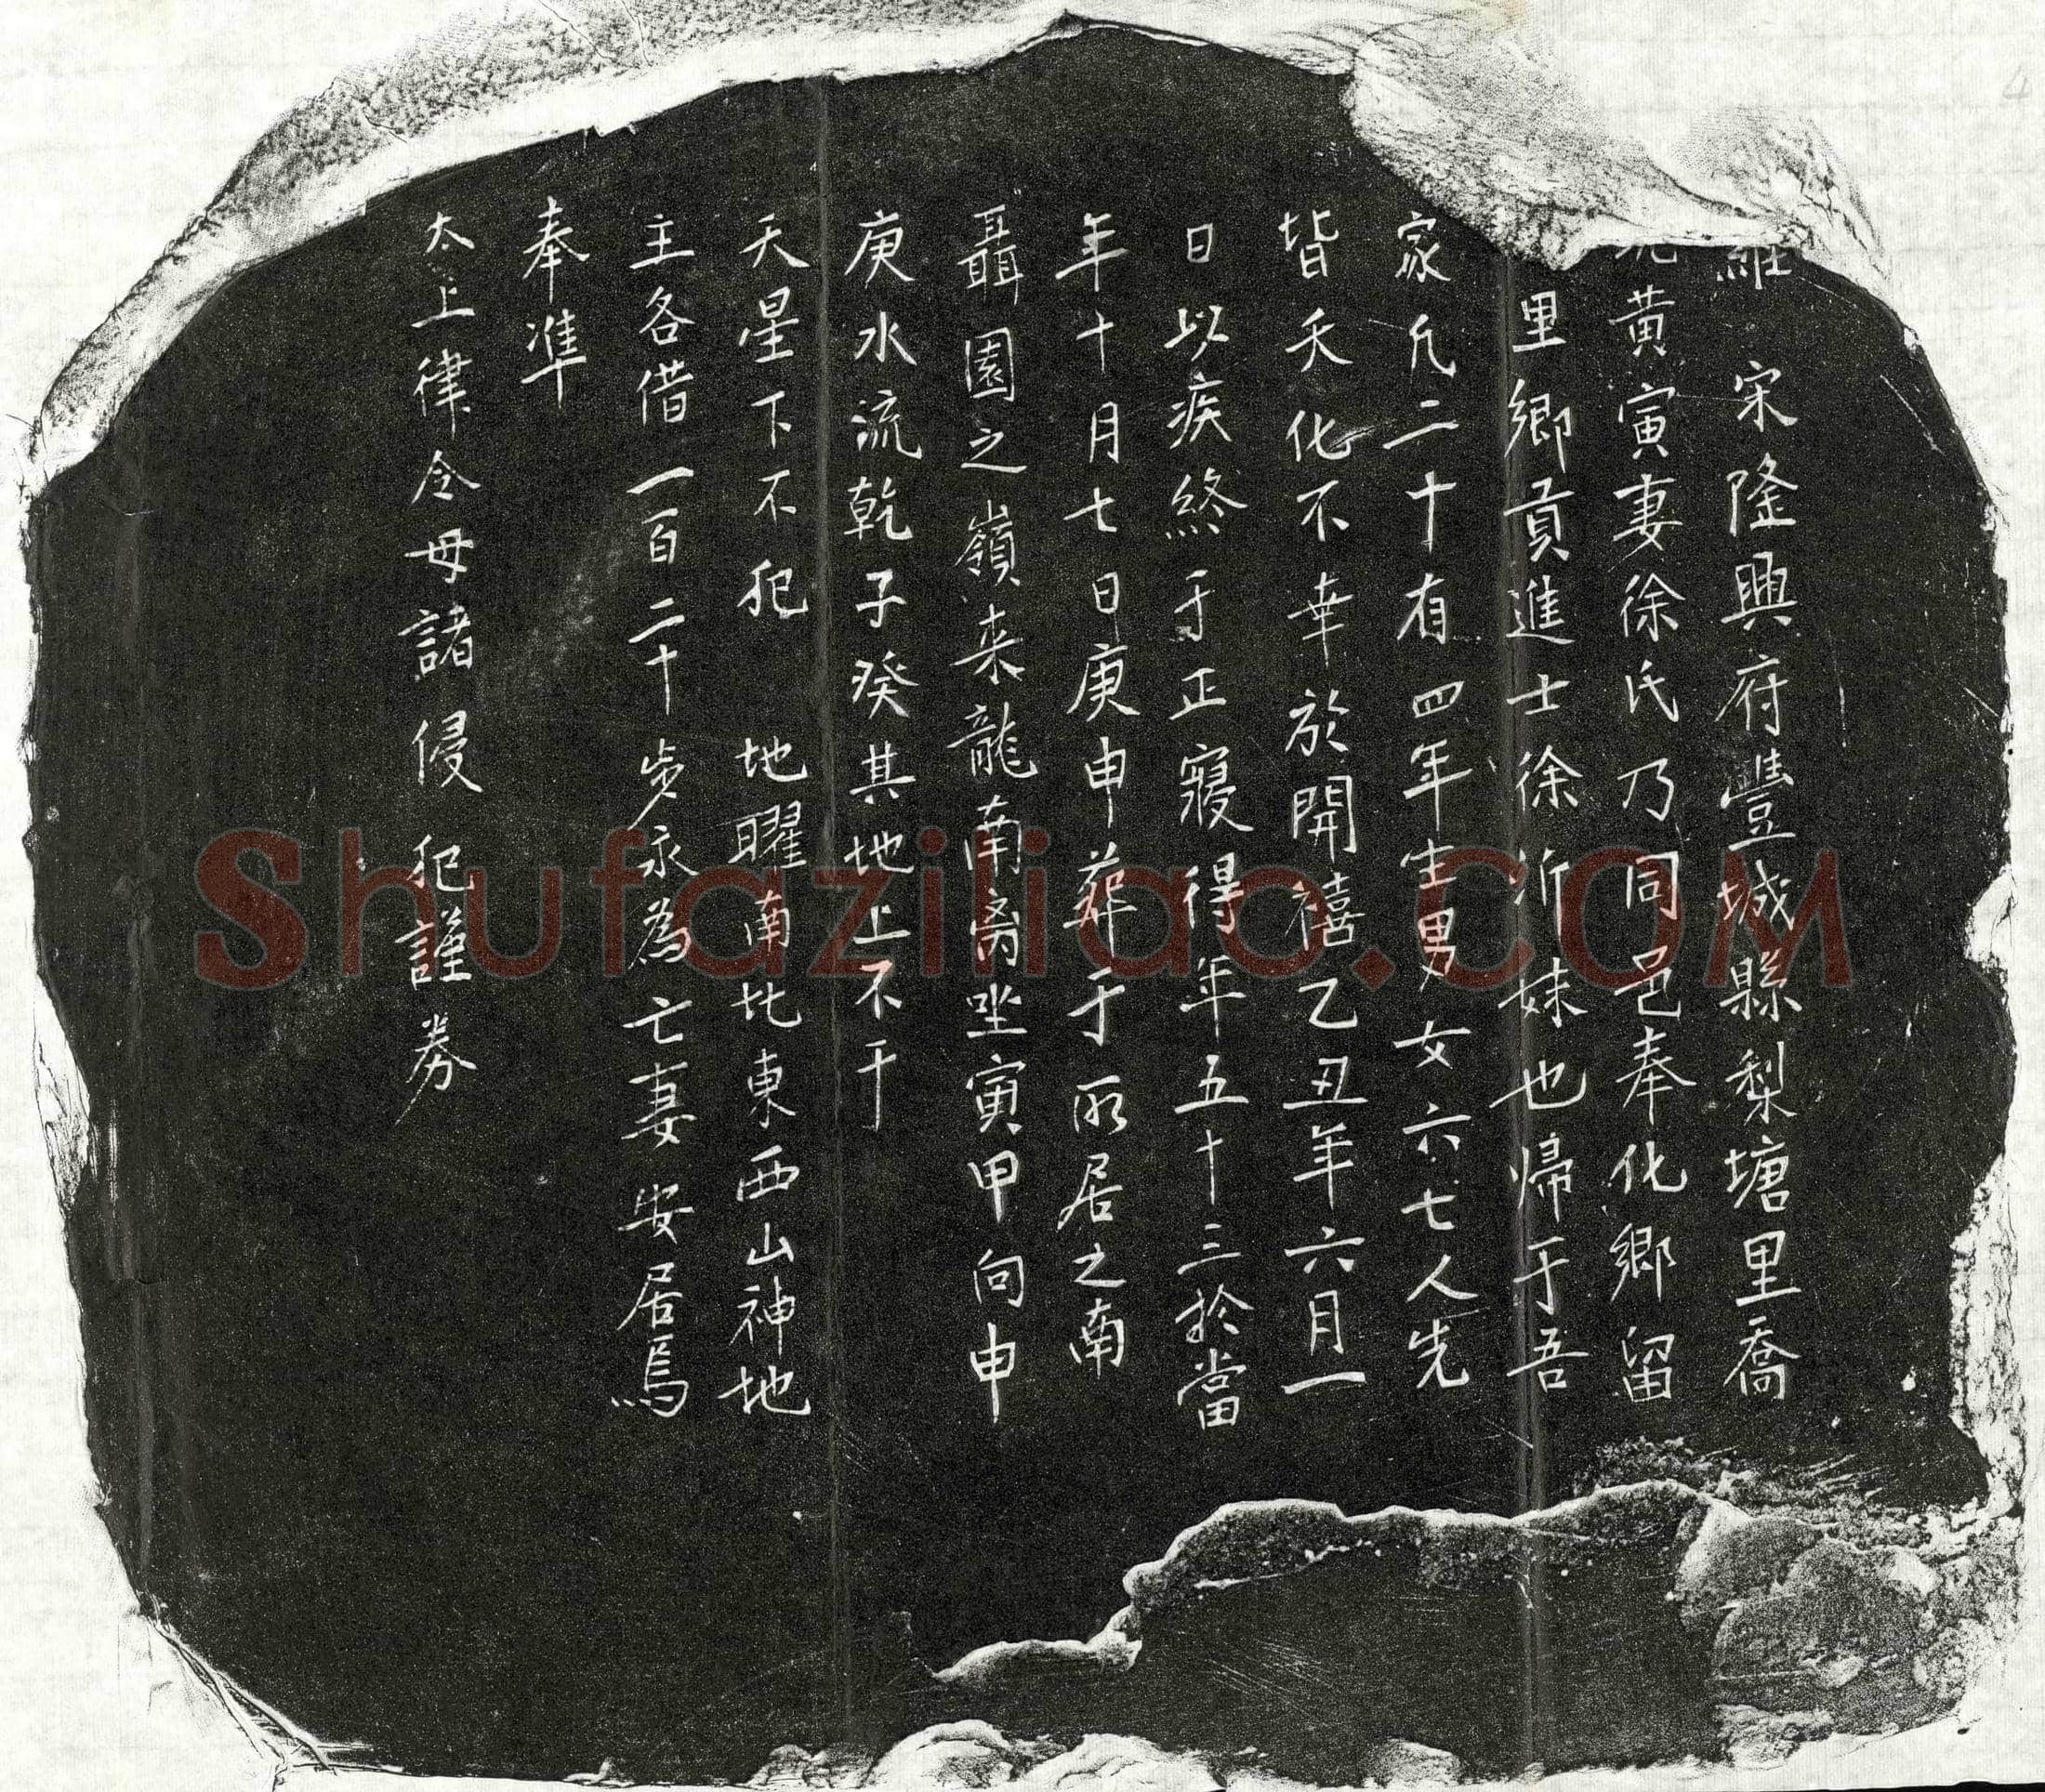 維 宋隆興府豐城縣梨塘里喬
黄寅妻徐氏乃同邑奉化鄉留
里鄉貢進士徐沂妹也歸于吾
家凢二十有四年生男女六七人先
皆夭化不幸於開禧乙丑年六月一
日以疾終于正寢得年五十三扵當
年十月七日庚申葬于所居之南
聶園之嶺来龍南离坐寅甲向申
庚水流乾子癸其地上不干
天星下不犯 地曜南北東西山神地
主各借一百二十步永為亡妻安居焉
奉準
太上律令毋諸侵犯謹券
Shufaziliao.COM
4